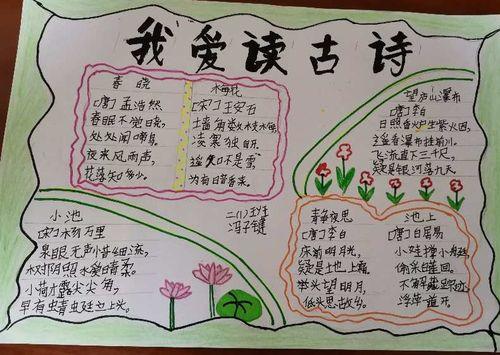 我爱读古诗
春晓
[唐]孟浩然
春眠不觉晓,
处处闻啼鸟。
夜来风雨声,
花落知多少。
梅花
[宋]王安石
墙角数枝梅,
凌寒独自开。
遥知不是雪,
为有暗香来。
望庐山瀑布
[唐]李白
日照香炉生紫烟,
遥看瀑布挂前川。
飞流直下三千尺,
疑是银河落九天。
小池
[宋]杨万里
泉眼无声惜细流,
树阴照水爱晴柔。
小荷才露尖尖角,
早有蜻蜓立上头。
二(1)班
冯子健
静夜思
[唐]李白
床前明月光,
疑是地上霜。
举头望明月,
低头思故乡。
池上
[唐]白居易
小娃撑小艇,
偷采白莲回。
不解藏踪迹,
浮萍一道开。